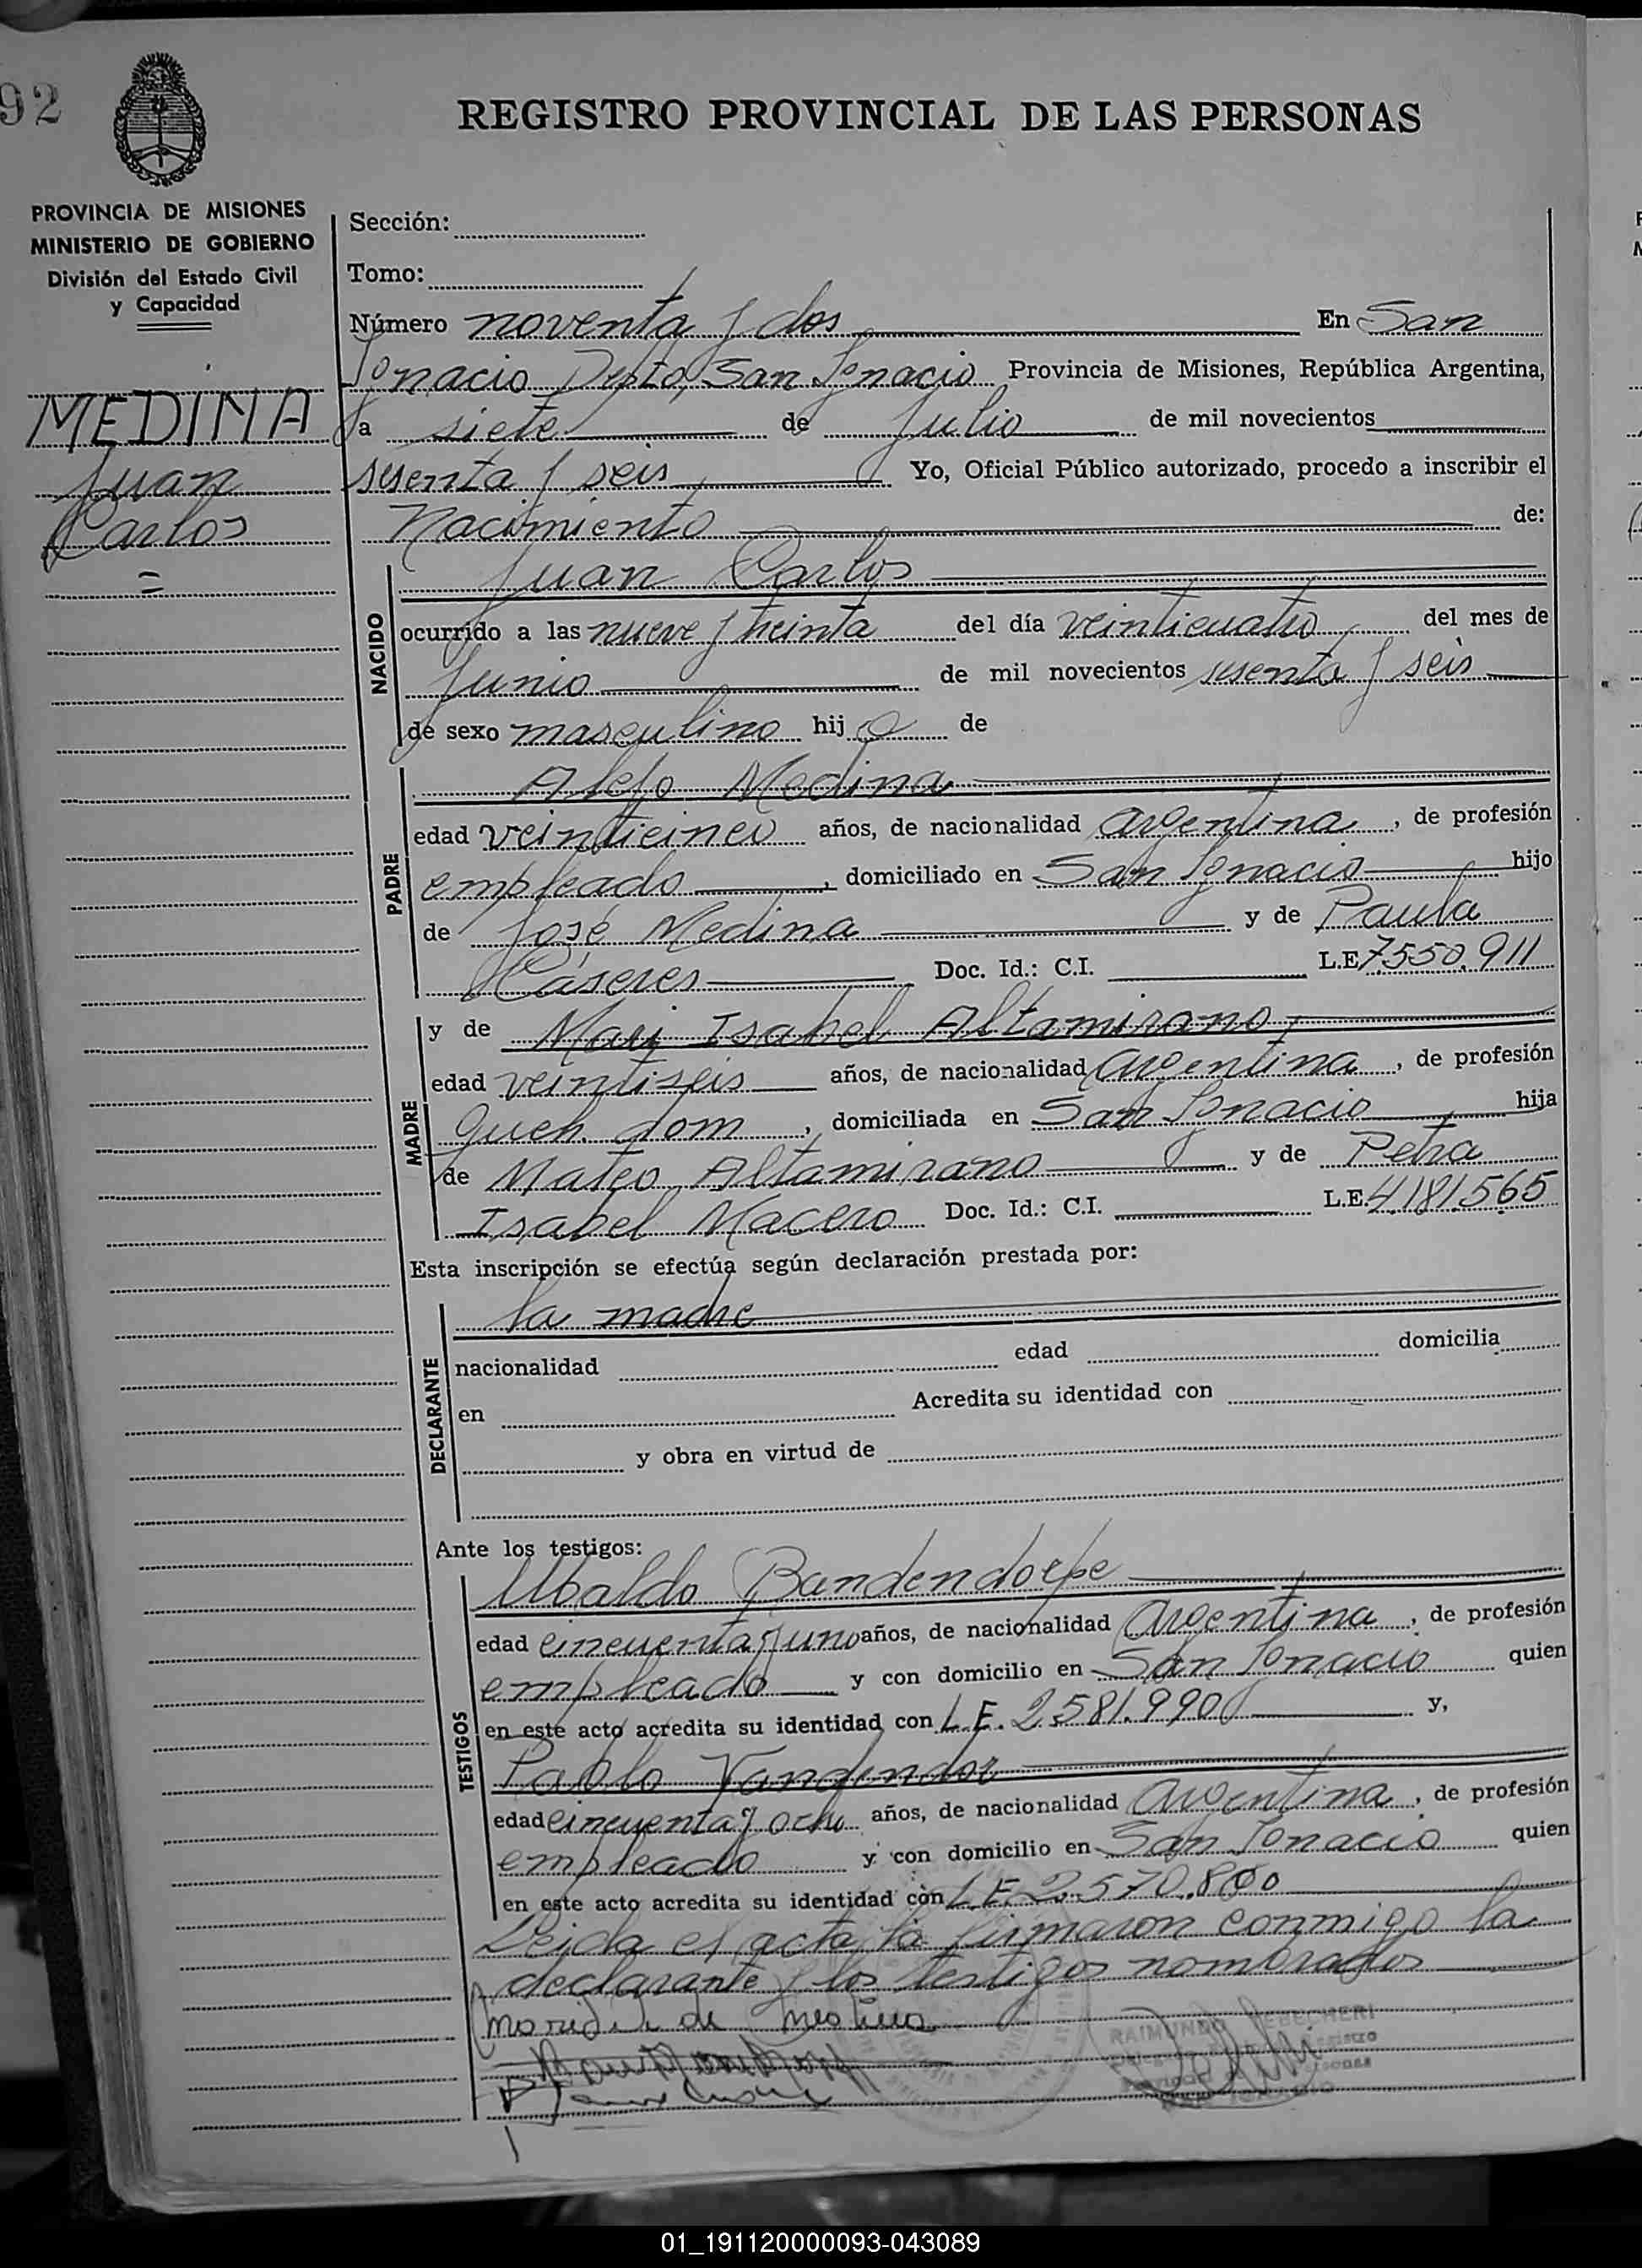 92
REGISTRO PROVINCIAL DE LAS PERSONAS
PROVINCIA DE MISIONES
MINISTERIO DE GOBIERNO
División del Estado Civil
y Capacidad
MEDINA
Juan
Carlos
=
Sección:
Tomo:
Número noventa y dos En San
Ignacio Depto, San Ignacio Provincia de Misiones, República Argentina,
a siete de Julio de mil novecientos
sesenta y seis Yo, Oficial Público autorizado, procedo a inscribir el
Nacimiento de:
NACIDO
Juan Carlos
ocurrido a las nueve y treinta del día veinticuatro del mes de
Junio de mil novecientos sesenta y seis
de sexo masculino hijo de
PADRE
Alejo Medina
edad veinticinco años, de nacionalidad argentina, de profesión
empleado, domiciliado en San Ignacio hijo
de José Medina y de Paula
Cáseres Doc. Id.: C.I. L.E. 7.550.911
MADRE
y de Mari Isabel Altamirano
edad veintiseis años, de nacionalidad argentina, de profesión
Queh. dom, domiciliada en San Ignacio hija
de Mateo Altamirano y de Petra
Isabel Macero Doc. Id.: C.I. L.E. 4.181.565
Esta inscripción se efectúa según declaración prestada por:
DECLARANTE
la madre
nacionalidad edad domicilia
en Acredita su identidad con
y obra en virtud de
Ante los testigos:
TESTIGOS
Ubaldo Bandendorpe
edad cincuenta y uno años, de nacionalidad Argentina, de profesión
empleado y con domicilio en San Ignacio quien
en este acto acredita su identidad con L.E. 2.581.990 y,
Pablo Vandendor
edad cincuenta y ocho años, de nacionalidad Argentina, de profesión
empleado y con domicilio en San Ignacio quien
en este acto acredita su identidad con L.E. 2.570.800
Leida el acta la firmaron conmigo la
declarante y los testigos nombrados
de Medina
RAIMUNDO
01_191120000093-043089